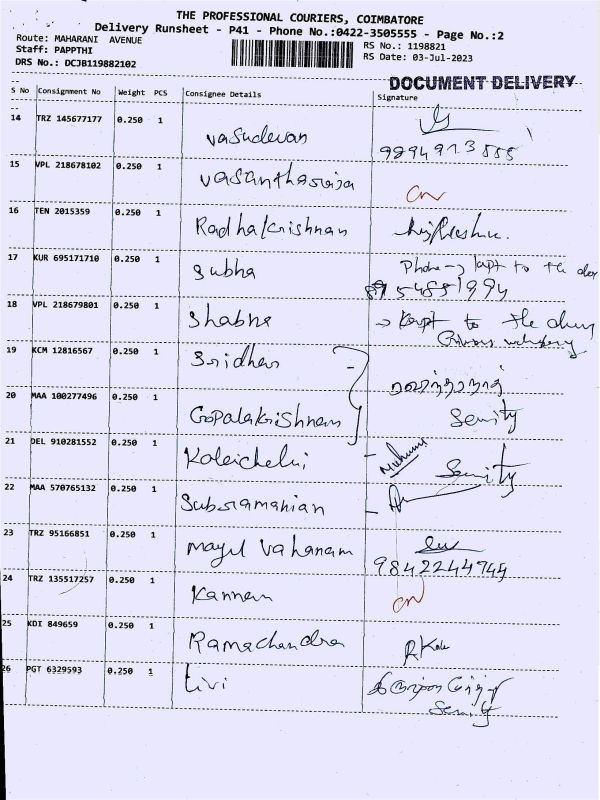 THE PROFESSIONAL COURIERS, COIMBATORE
Delivery Runsheet - P41 - Phone No.:0422-3505555 - Page No.:2
Route: MAHARANI AVENUE
Staff: PAPPTHI
DRS No.: DCJB119882102
RS No.: 1198821
RS Date: 03-Jul-2023
DOCUMENT DELIVERY
S No Consignment No Weight PCS Consignee Details Signature
14 TRZ 145677177 0.250 1 Vasudevan
9894913555
15 VPL 218678102 0.250 1 Vasantharaja CN
16 TEN 2015359 0.250 1 Radhakrishnan
17 KUR 695171710 0.250 1 Subha Phone → kept to the door
8954851994
18 VPL 218679801 0.250 1 Shabna → kept to the
19 KCM 12816567 0.250 1 Sridhar
20 MAA 100277496 0.250 1 Gopalakrishnan Serity
21 DEL 910281552 0.250 1 Kaleichelvi Serity
22 MAA 570765132 0.250 1 Subramanian
23 TRZ 95166851 0.250 1 Mayil Vahanam
9842244745
24 TRZ 135517257 0.250 1 Kannan CN
25 KDI 849659 0.250 1 Ramachandra R Kala
26 PGT 6329593 0.250 1 tivi
Serity